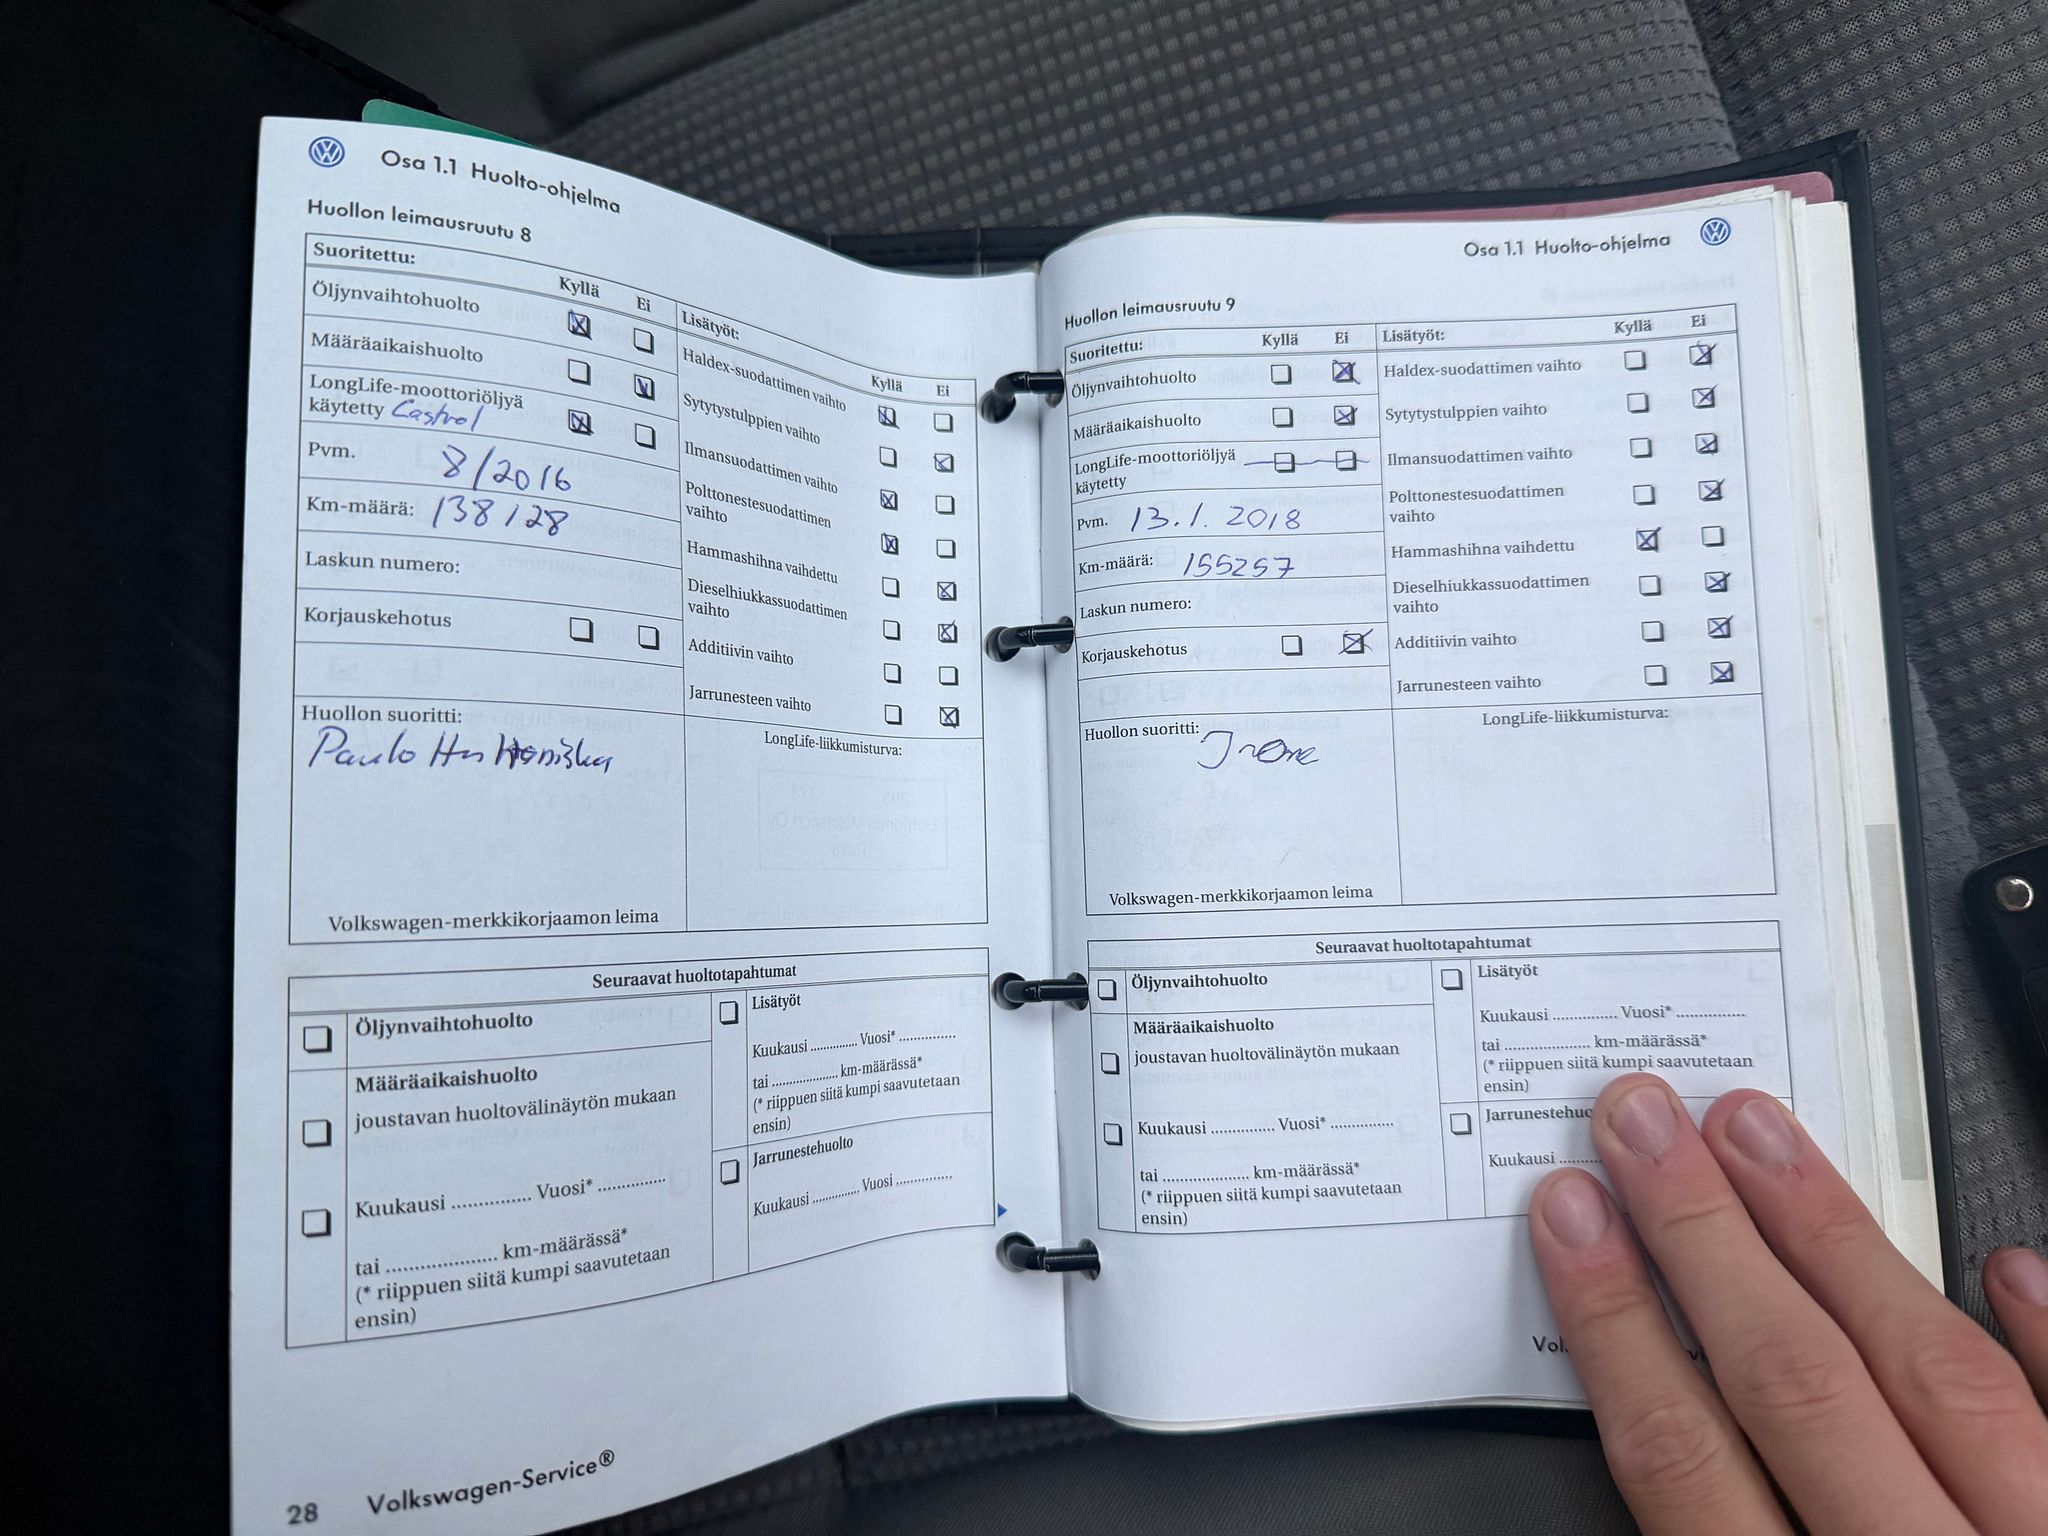 Osa 1.1 Huolto-ohjelma
Huollon leimausruutu 8
Suoritettu:
Kyllä Ei
Öljynvaihtohuolto
Määräaikaishuolto
LongLife-moottoriöljyä
käytetty Castrol
Pvm. 8/2016
Km-määrä: 138128
Laskun numero:
Korjauskehotus
Huollon suoritti:
Volkswagen-merkkikorjaamon leima
Lisätyöt:
Kyllä Ei
Haldex-suodattimen vaihto
Sytytystulppien vaihto
Ilmansuodattimen vaihto
Polttonestesuodattimen
vaihto
Hammashihna vaihdettu
Dieselhiukkassuodattimen
vaihto
Additiivin vaihto
Jarrunesteen vaihto
LongLife-liikkumisturva:
Seuraavat huoltotapahtumat
Öljynvaihtohuolto
Määräaikaishuolto
joustavan huoltovälinäytön mukaan
Kuukausi ............... Vuosi* ...............
tai ..................... km-määrässä*
(* riippuen siitä kumpi saavutetaan
ensin)
Lisätyöt
Kuukausi ............... Vuosi* ...............
tai ..................... km-määrässä*
(* riippuen siitä kumpi saavutetaan
ensin)
Jarrunestehuolto
Kuukausi ............... Vuosi ...............
28 Volkswagen-Service®
Osa 1.1 Huolto-ohjelma
Huollon leimausruutu 9
Suoritettu:
Kyllä Ei
Öljynvaihtohuolto
Määräaikaishuolto
LongLife-moottoriöljyä
käytetty
Pvm. 13.1. 2018
Km-määrä: 155257
Laskun numero:
Korjauskehotus
Huollon suoritti:
Volkswagen-merkkikorjaamon leima
Lisätyöt:
Kyllä Ei
Haldex-suodattimen vaihto
Sytytystulppien vaihto
Ilmansuodattimen vaihto
Polttonestesuodattimen
vaihto
Hammashihna vaihdettu
Dieselhiukkassuodattimen
vaihto
Additiivin vaihto
Jarrunesteen vaihto
LongLife-liikkumisturva:
Seuraavat huoltotapahtumat
Öljynvaihtohuolto
Määräaikaishuolto
joustavan huoltovälinäytön mukaan
Kuukausi ............... Vuosi* ...............
tai ..................... km-määrässä*
(* riippuen siitä kumpi saavutetaan
ensin)
Lisätyöt
Kuukausi ............... Vuosi* ...............
tai ..................... km-määrässä*
(* riippuen siitä kumpi saavutetaan
ensin)
Jarrunestehuo
Kuukausi ..........